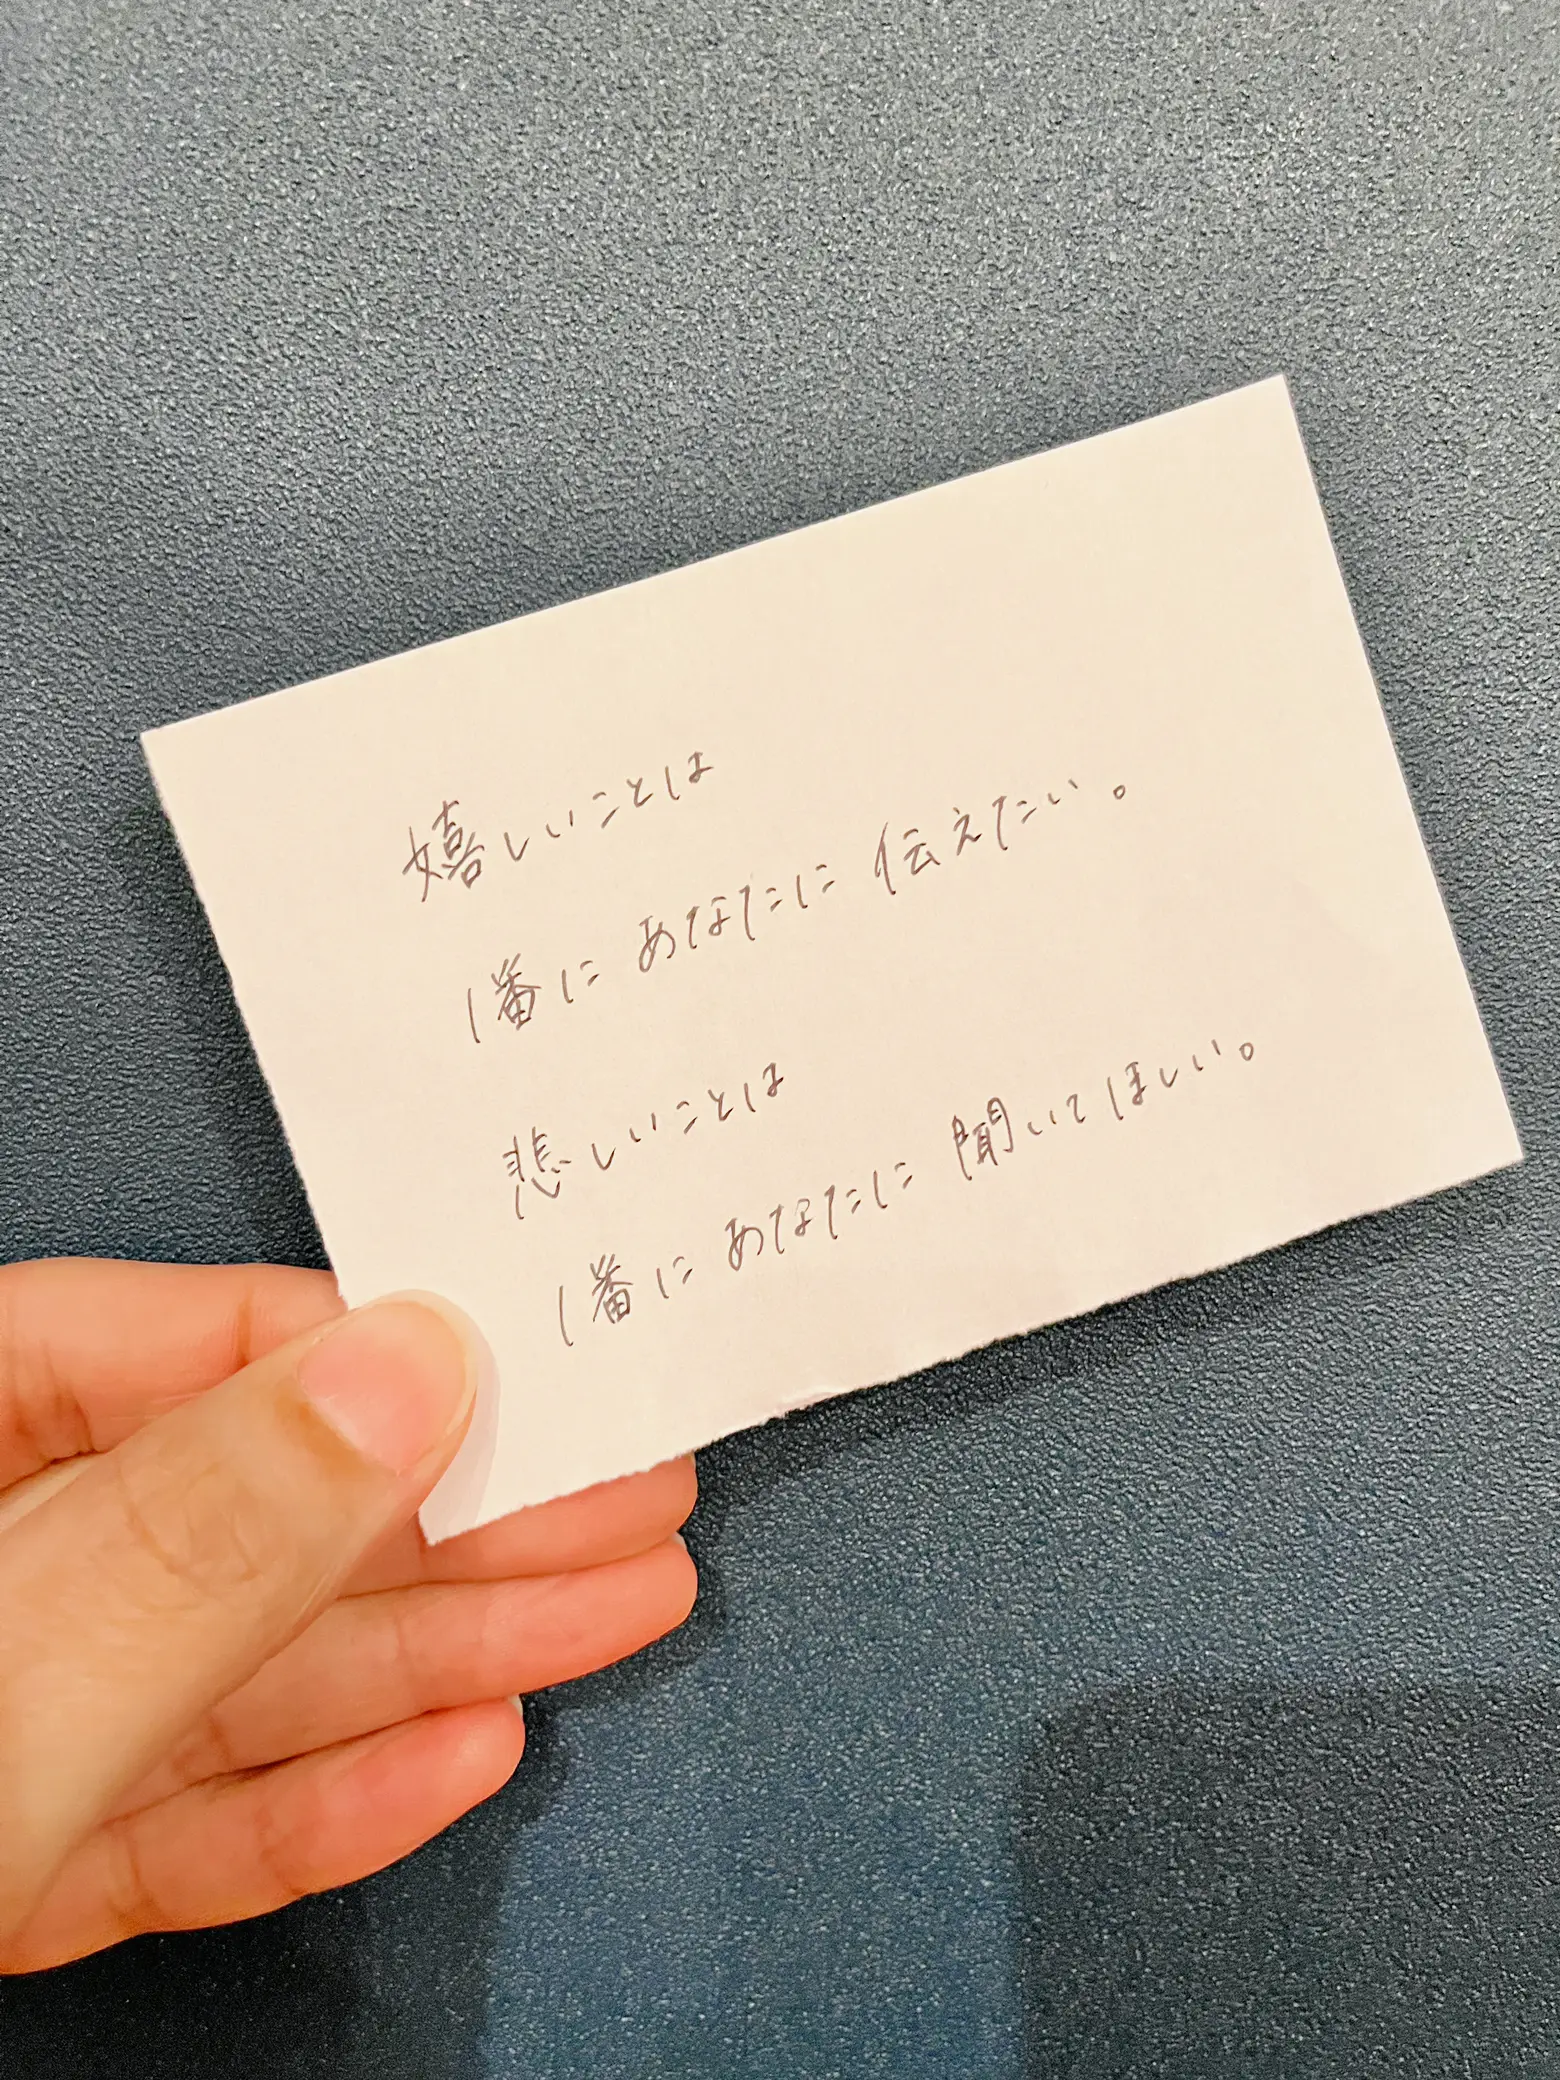 嬉しいことは
1番に あなたに 伝えたい。
悲しいことは
1番に あなたに 聞いてほしい。